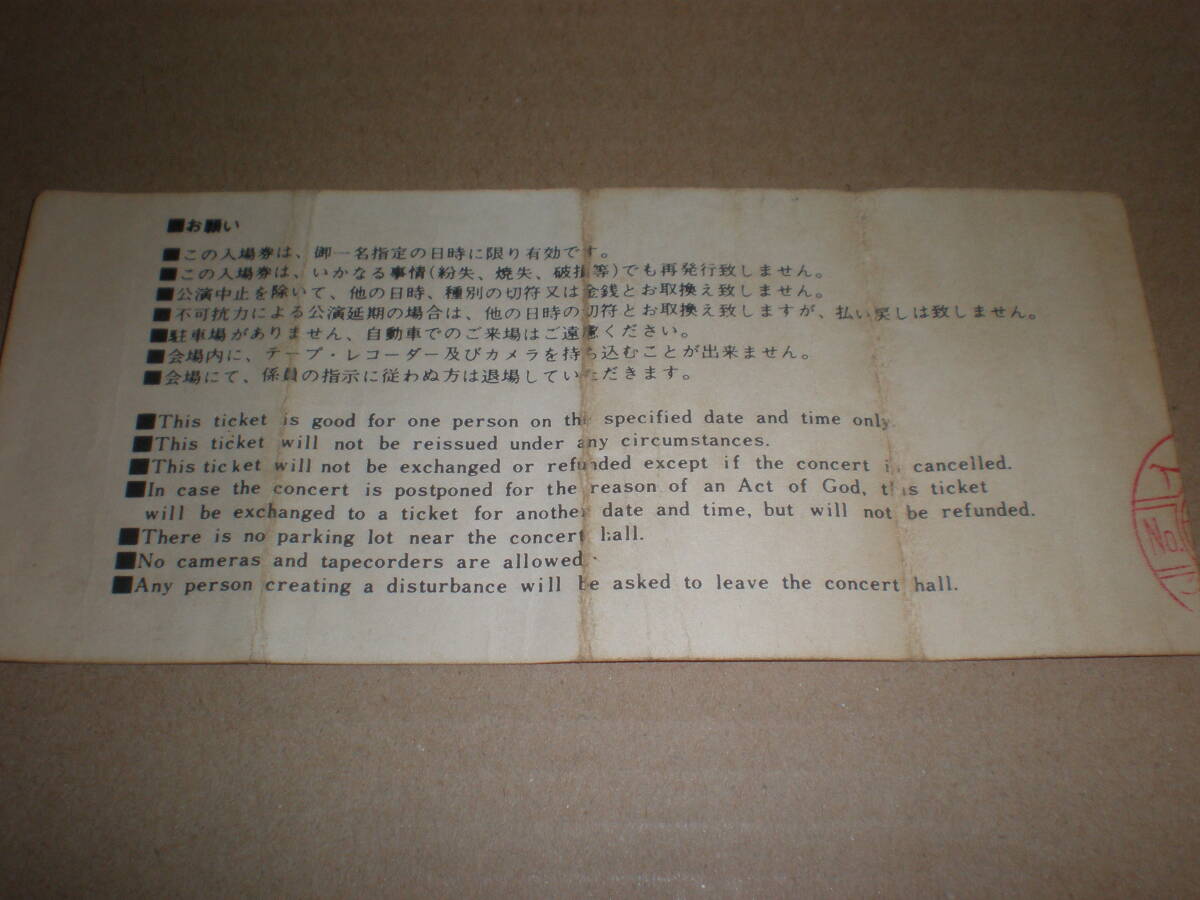 ■お願い
■この入場券は、御一名指定の日時に限り有効です。
■この入場券は、いかなる事情(紛失、焼失、破損等)でも再発行致しません。
■公演中止を除いて、他の日時、種別の切符又は金銭とお取換え致しません。
■不可抗力による公演延期の場合は、他の日時の切符とお取換え致しますが、払い戻しは致しません。
■駐車場がありません、自動車でのご来場はご遠慮ください。
■会場内に、テープ・レコーダー及びカメラを持ち込むことが出来ません。
■会場にて、係員の指示に従わぬ方は退場していただきます。
■This ticket is good for one person on the specified date and time only.
■This ticket will not be reissued under any circumstances.
■This ticket will not be exchanged or refunded except if the concert is cancelled.
■In case the concert is postponed for the reason of an Act of God, this ticket
will be exchanged to a ticket for another date and time, but will not be refunded.
■There is no parking lot near the concert hall.
■No cameras and tapecorders are allowed.
■Any person creating a disturbance will be asked to leave the concert hall.
No.